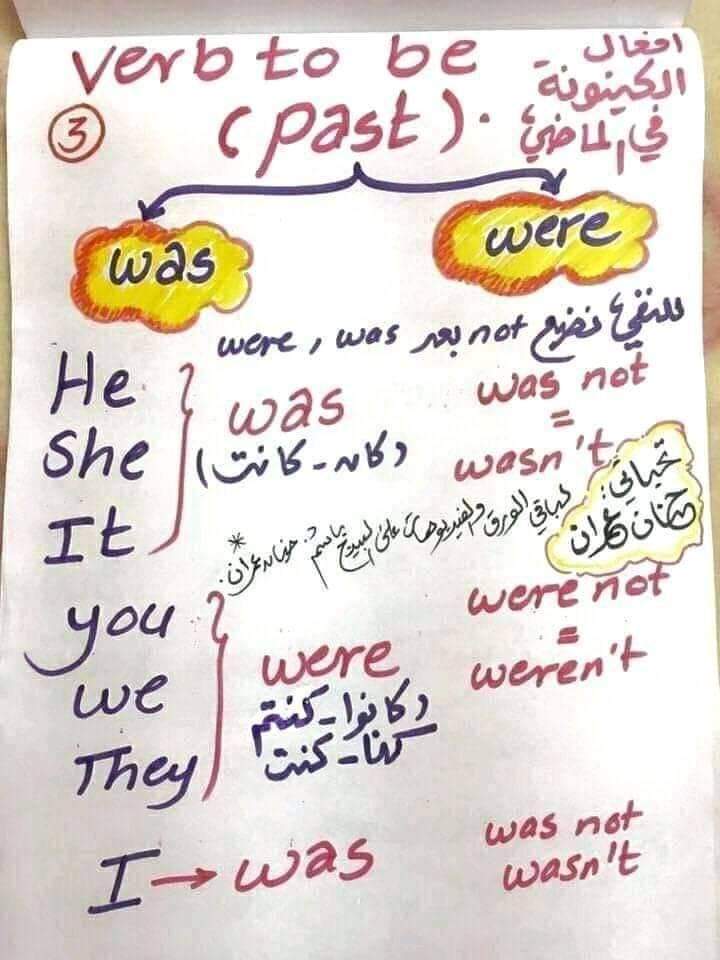 Verb to be
(past).
افعال
الكينونة
في الماضي
3
was
were
للنفي نضع not بعد were , was
He
She
It
was
(كان - كانت)
was not
=
wasn't
تحياتي:
حنان عمران
لباقي الورق والفيديوهات على البيدج باسم: حنان عمران. *
you
we
They
were
كانوا - كنتم
كنا - كنت
were not
=
weren't
I → was
was not
wasn't